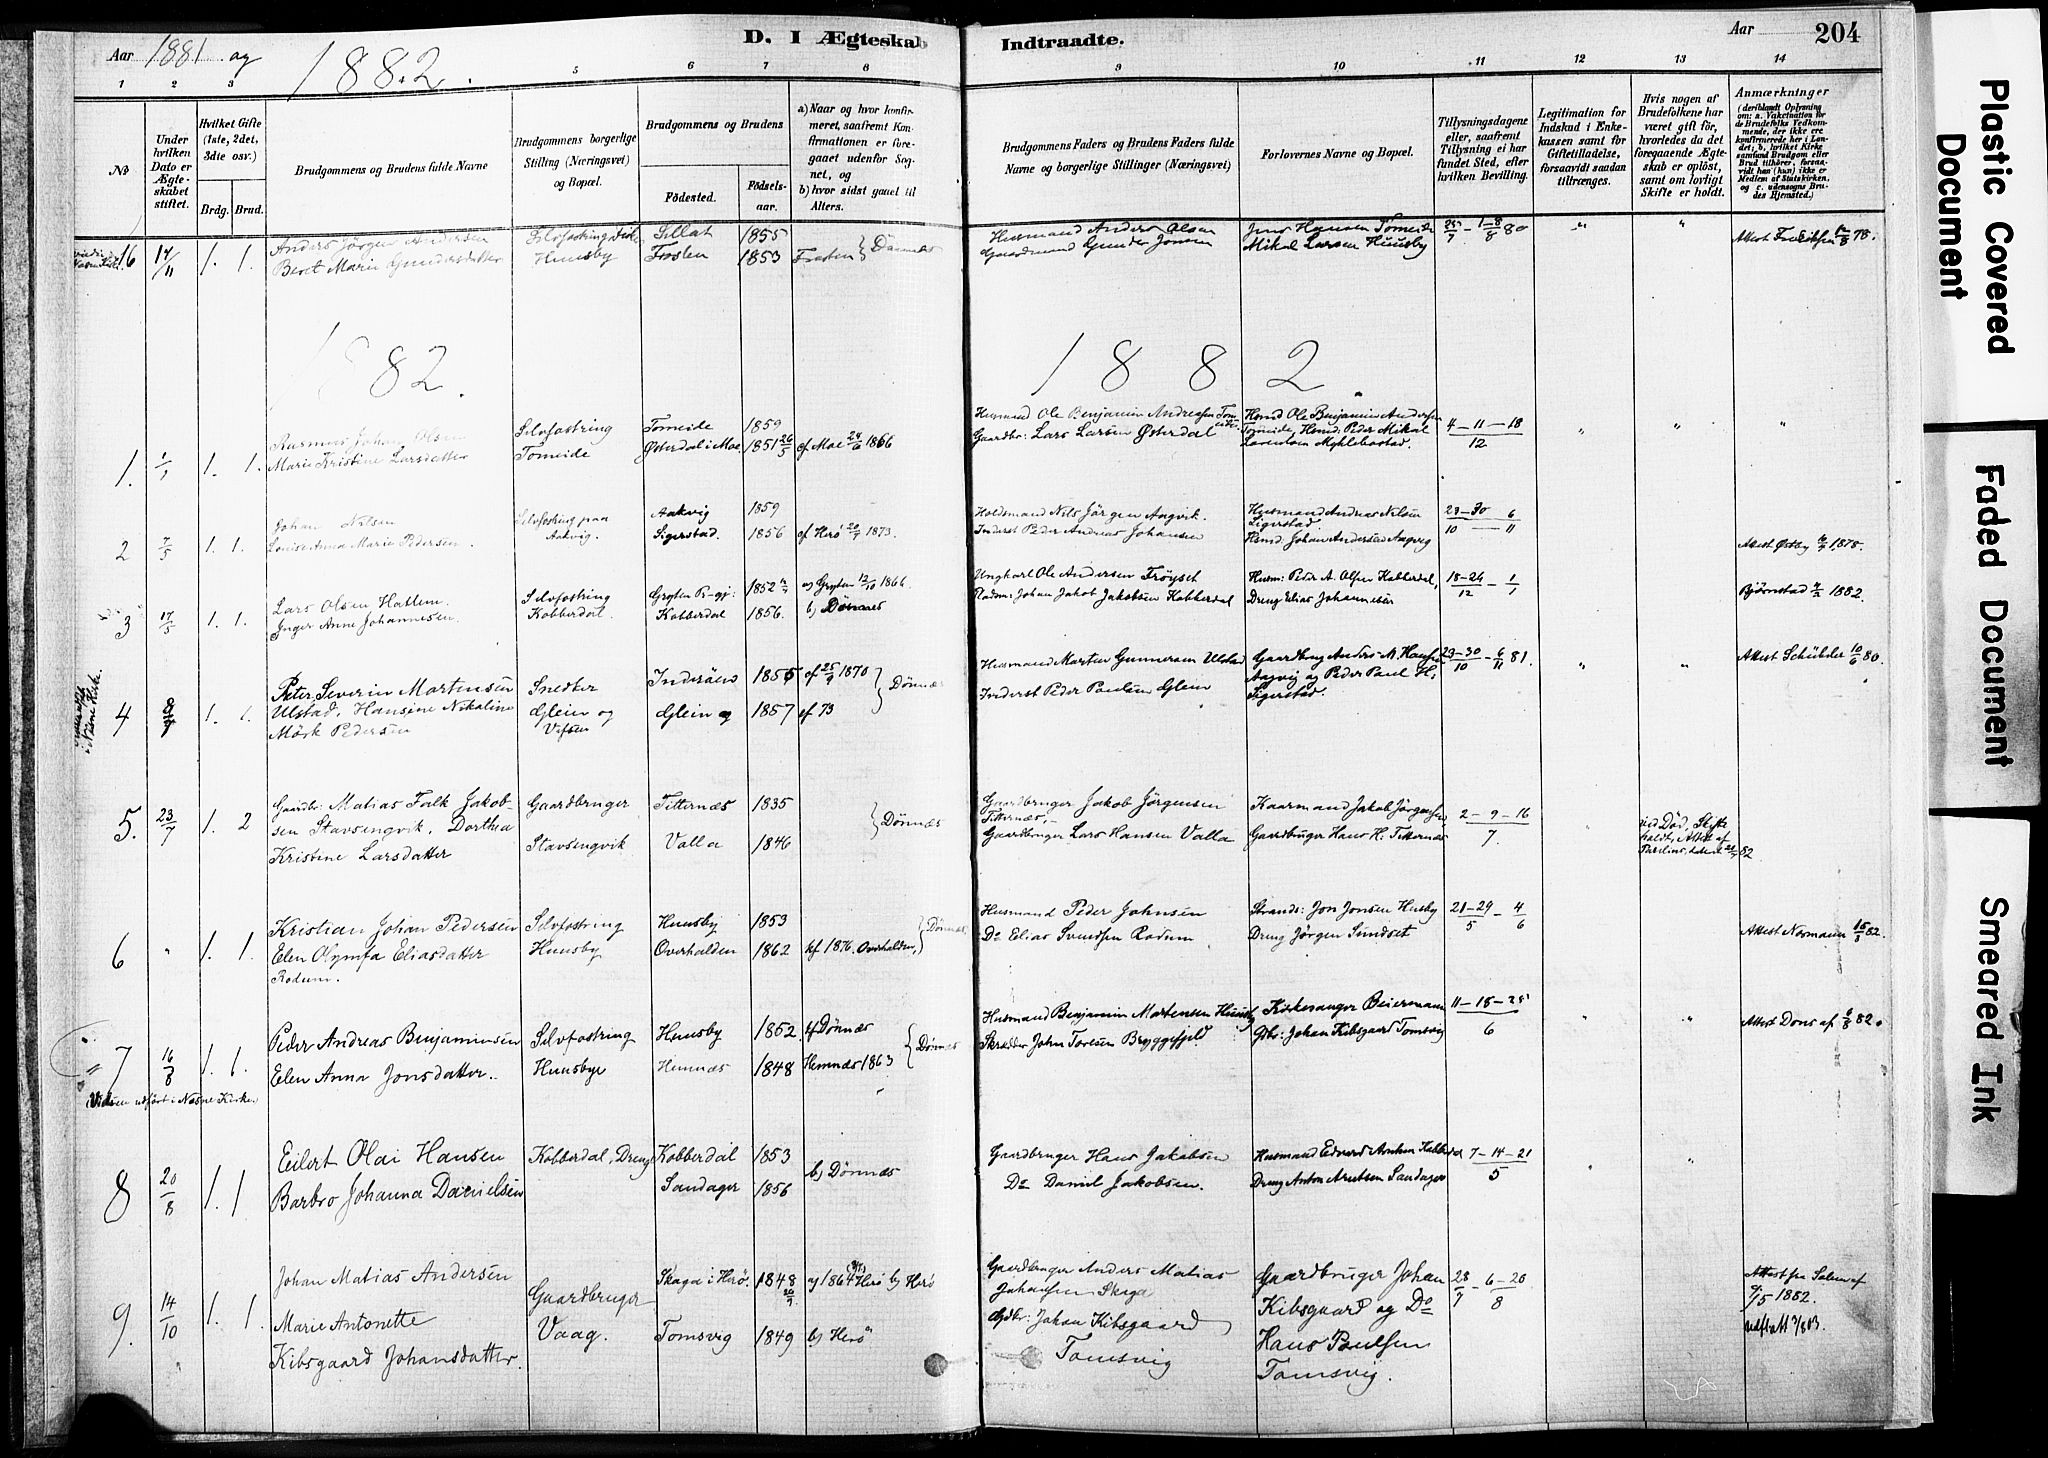 Aar 1881 og 1882.
D. I Ægteskab Indtraadte.
Aar 204
1 2 3 5 6 7 8 9 10 11 12 13 14
No
Under hvilken Dato er Ægteskabet stiftet.
Hvilket Gifte (1ste, 2det, 3die osv.)
Brdg. Brud.
Brudgommens og Brudens fulde Navne
Brudgommens borgerlige Stilling (Næringsvei) og Bopæl.
Brudgommens og Brudens
Födested. Födsels-aar.
a) Naar og hvor konfirmeret, saafremt Konfirmationen er foregaaet udenfor Sognet, og
b) hvor sidst gaaet til Alters.
Brudgommens Faders og Brudens Faders fulde Navne og borgerlige Stillinger (Næringsvei)
Forlovernes Navne og Bopæl.
Tillysningsdagene eller, saafremt Tillysning ei har fundet Sted, efter hvilken Bevilling.
Legitimation for Indskud i Enkekassen samt for Giftetilladelse, forsaavidt saadan tiltrænges.
Hvis nogen af Brudefolkene har været gift før, hvorledes da det foregaaende Ægteskab er oplöst, samt om lovligt Skifte er holdt.
Anmærkninger
(deriblandt Oplysning om: a. Vaksination for de Brudefolks Vedkommende, der ikke ere konfirmerede her i Landet; b. hvilket Kirkesamfund Brudgom eller Brud tilhörer, forsaavidt han (hun) ikke er Medlem af Statskirken, og c. udensogns Brudes Hjemsted.)
16 17/11 1. 1. Anders Jörgen Andersen
Beret Marie Gundersdatter
Huusby
1855
1853 Dönnæs
Husmand Anders Olsen
Gaardmand Gunder Jonsen
Jens Hansen Tomeide
Mikal Larsen Huusby
25/7 - 1-8/8 80
1882.
1882.
1. 1/1 1. 1. Rasmus Johan Olsen
Marie Kristine Larsdatter
Selvfostring
Tomeide
Tomeide 1859
Österdal i Moe 1851 26/5 cf Moe 24/6 1866
Husmand Ole Benjamin Andreasen Tomeide
Gaardbr: Lars Larsen Österdal
Hsmd Ole Benjamin Andreasen
Tomeide, Hsmd: Peder Mikal
Larentsen Myklebostad.
4-11-18/12
2 7/5 1. 1. Johan Nilsen
Louise Anna Marie Pedersen.
Selvfostring paa
Aakvig.
Aakvig 1859
Sigerstad. 1856 cf Herö 20/7 1873.
Holdsmand Nils Jörgen Aagvik.
Inderst Peder Andreas Johansen
Husmand Andreas Nilsen
Sigerstad
Hsmd. Johan Andersen Aagvig
23-30/10 - 6/11
Attest Østby 1878.
3 17/5 1. 1. Lars Olsen Hallem.
Inger Anne Johannesen.
Selvfostring
Kobberdal.
Grytten P-gj: 1852
Kobberdal 1856.
a) Grytten 12/10 1866
b) Dönnæs
Ungkarl Ole Andersen Fröyset
Johan Jakob Jakobsen Kobberdal
Husm: Peder A. Olsen Kobberdal,
Dreng Elias Johannesen
18-24/12 - 1/1
Bjørnstad 1882.
4 8/7 1. 1. Peter Severin Martensen
Ulstad, Hansine Nikoline
Mörk Pedersen
Snedker
Glein og
Vefsen
Inderöen 1855 cf 25/9 1870
Glein 1857 cf 73
Dönnæs
Husmand Morten Gunnersen Ulstad
Inderst Peder Paulsen Glein
Gaardbrug Anders M. Hansen
Aagvig og Peder Paul H.
Sigerstad.
23-30/10 - 6/11 81.
Attest Schübler 10/6 80.
5. 23/7 1. 2 Gaardbr: Matias Falk Jakobsen
Stavsengvik, Dorthea
Kristine Larsdatter
Gaardbruger
Stavsengvik
Titternæs 1835
Valla 1846
Dönnæs
Gaardbruger Jakob Jörgensen
Titternæs,
Gaardbruger Lars Hansen Valla
Kaarmand Jakob Jörgensen
Gaardbruger Hans H. Titternæs
2-9-16/7
ved Död, Skifte
holdt, Attest af
82
6 " 1. 1. Kristian Johan Pedersen
Elen Olymfa Eliasdatter
Rodum.
Selvfostring
Huusby
Huusby 1853
Overhalden 1862 cf 1876. Overhalden,
Dönnæs
Husmand Peder Johnsen
Do Elias Svendsen Rodum
Strands: Jon Jonsen Husby
Dreng Jörgen Sundset
21-29/5 - 4/6
Attest Normann 82.
7 16/8 1. 1. Peder Andreas Benjaminsen
Elen Anna Jonsdatter.
Selvfostring
Huusbye
Huusby 1852. cf Dönnæs
Hemnæs 1848 Hemnæs 1863
Dönnæs
Vielsen udfört i Næsne Kirke.
Husmand Benjamin Mortensen Huusby
Skrædder John Toresen Bryggefjeld
Kirkesanger Beiermann
Gbr: Johan Kibsgaard Tomsvig
11-18-25/6
Attest Dons af 82.
8 20/8 1. 1 Eilert Olai Hansen
Barbro Johanna Danielsen
Kobberdal, Dreng
Kobberdal 1853
Sandager 1856
b) Dönnæs
Gaardbruger Hans Jakobsen
Do Daniel Jakobsen.
Husmand Edvard Arntsen Kobberdal
Dreng Anton Arntsen Sandager
7-14-21/5
9. 14/10 1. 1. Johan Matias Andersen
Marie Antonette
Kibsgaard Johansdatter.
Gaardbruger
Vaag.
Skaga i Herö. 1848 20/9 a) 1864 Herö b) Herö
Tomsvig 1849 b) Herö
Gaardbruger Anders Matias
Johansen Skaga
Gdbr: Johan Kibsgaard
Tomsvig
Gaardbruger Johan
Kibsgaard og Do
Hans Poulsen
Tomsvig.
28/7 - 6-20/8
Attest fra Salem af
5 1882.
udflatt 3/8 83.
Plastic Covered Document
Faded Document
Smeared Ink